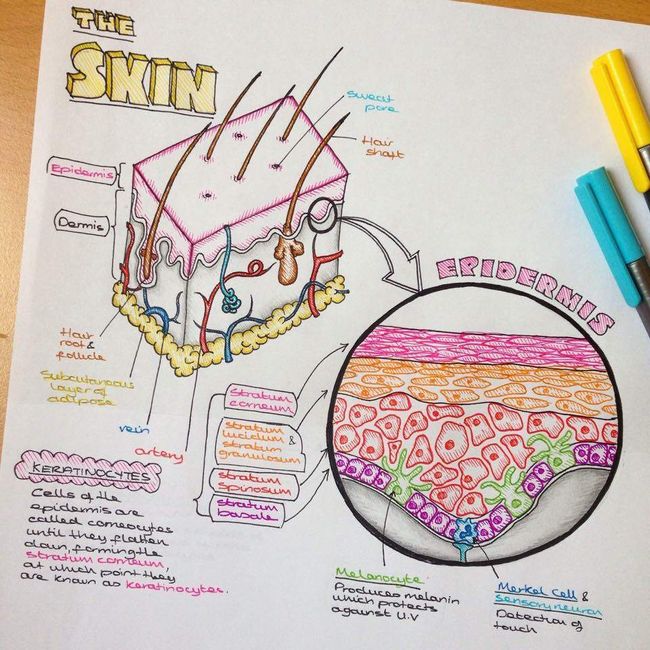 THE
SKIN
Sweat
pore
Hair
shaft
Epidermis
Dermis
EPIDERMIS
Hair
root &
follicle
Subcutaneous
layer of
adipose
vein
artery
Stratum
corneum
Stratum
lucidum &
Stratum
granulosum
Stratum
Spinosum
Stratum
basale
KERATINOCYTES
Cells of the
epidermis are
called corneocytes
until they flatten
down, forming the
stratum corneum,
at which point they
are known as keratinocytes.
Melanocyte
Produces melanin
which protects
against U.V
Merkel Cell &
Sensory neuron
Detection of
touch